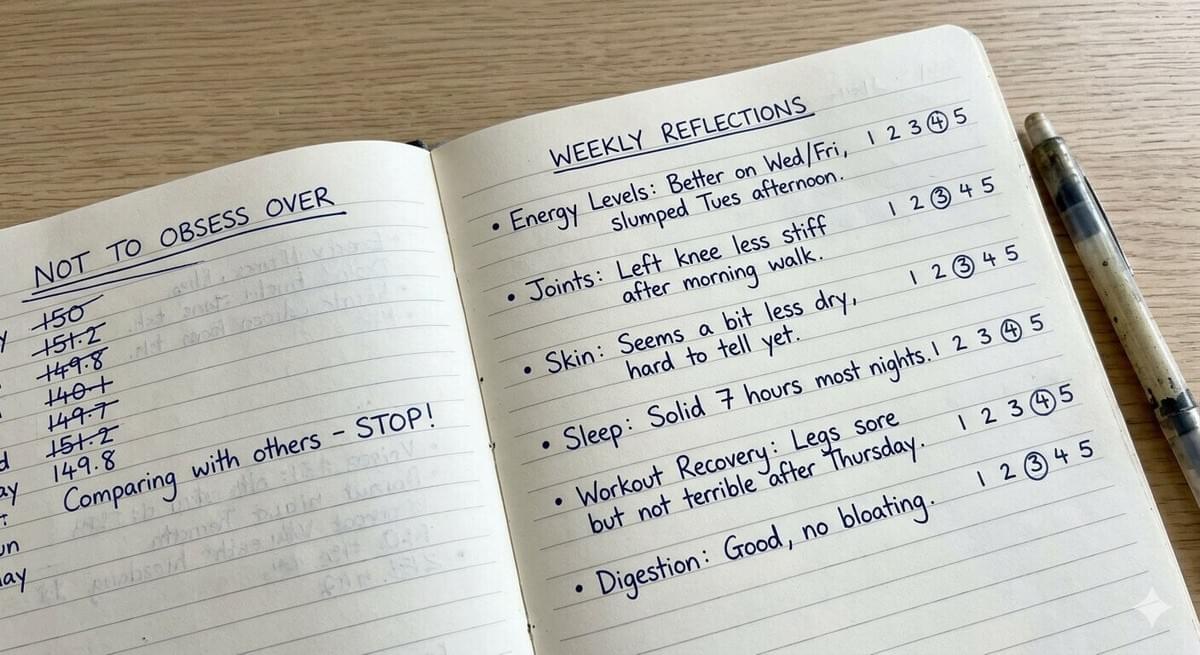 NOT TO OBSESS OVER
150
151.2
149.8
140.1
149.7
151.2
149.8
Comparing with others - STOP!
WEEKLY REFLECTIONS
• Energy Levels: Better on Wed/Fri, 1 2 3 4 5
slumped Tues afternoon.
• Joints: Left knee less stiff 1 2 3 4 5
after morning walk.
• Skin: Seems a bit less dry, 1 2 3 4 5
hard to tell yet.
• Sleep: Solid 7 hours most nights. 1 2 3 4 5
• Workout Recovery: Legs sore 1 2 3 4 5
but not terrible after Thursday.
• Digestion: Good, no bloating. 1 2 3 4 5